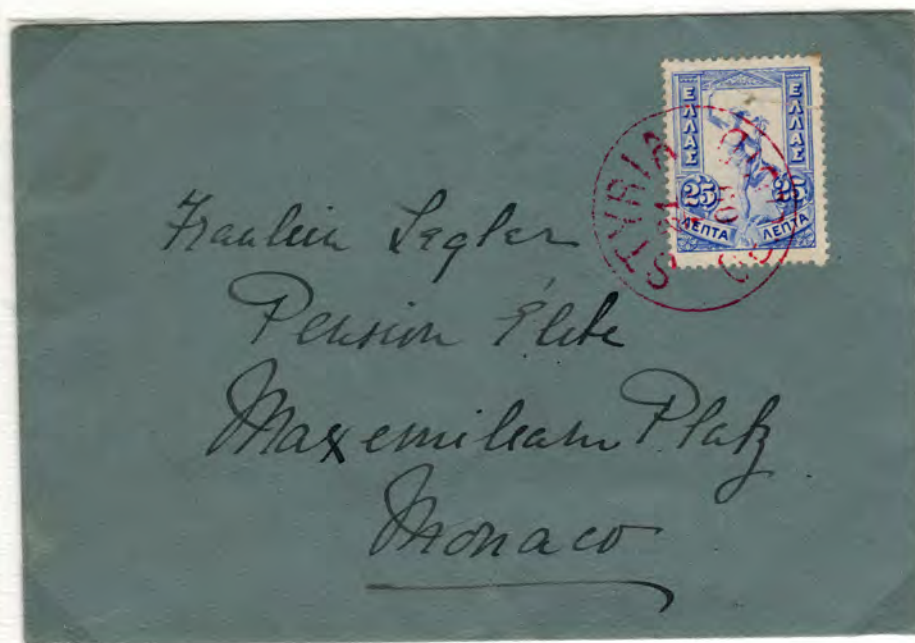 ΕΛΛΑΣ ΕΛΛΑΣ
25 25
ΛΕΠΤΑ ΛΕΠΤΑ
STYRIA
Fraulein Legler
Pension Élite
Maxemiliam Platz
Monaco